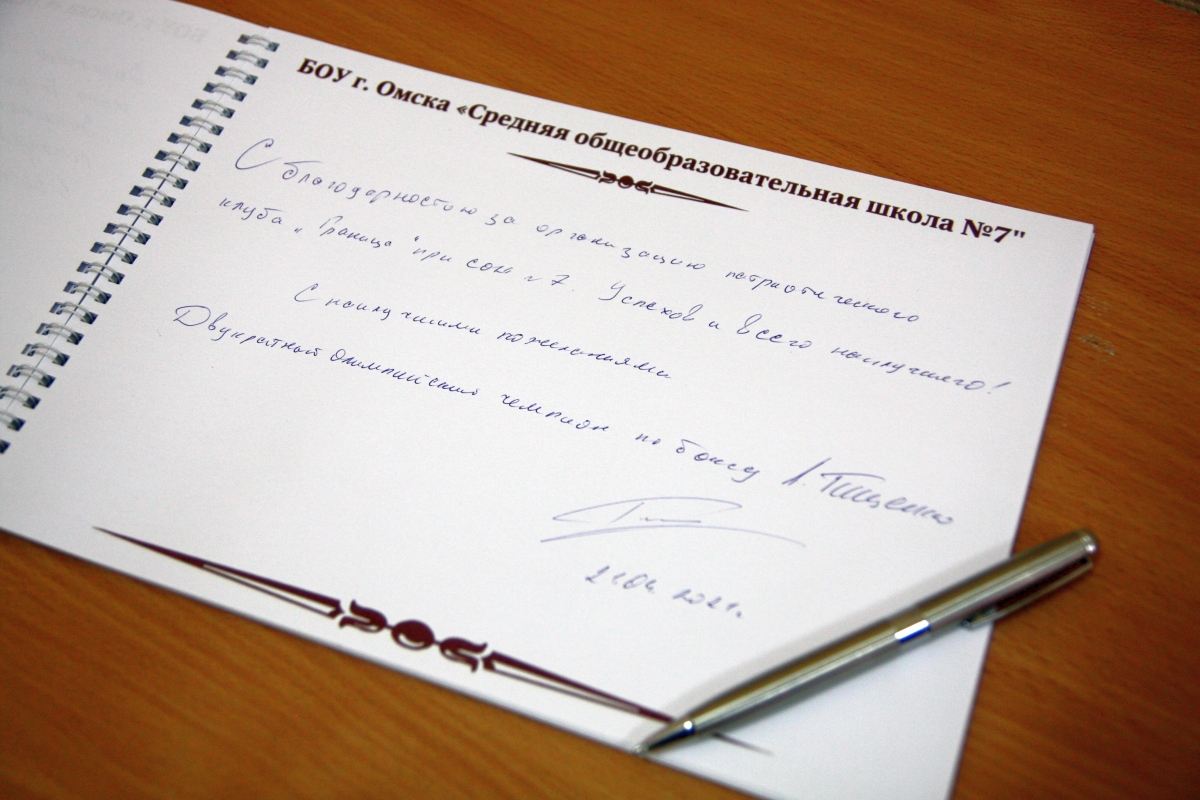 БОУ г. Омска «Средняя общеобразовательная школа №7"
С благодарностью за организацию патриотического
клуба „Граница" при сош №7. Успехов и всего наилучшего!
С наилучшими пожеланиями
Двукратный Олимпийский чемпион по боксу А. Тищенко
21.04. 2021г.